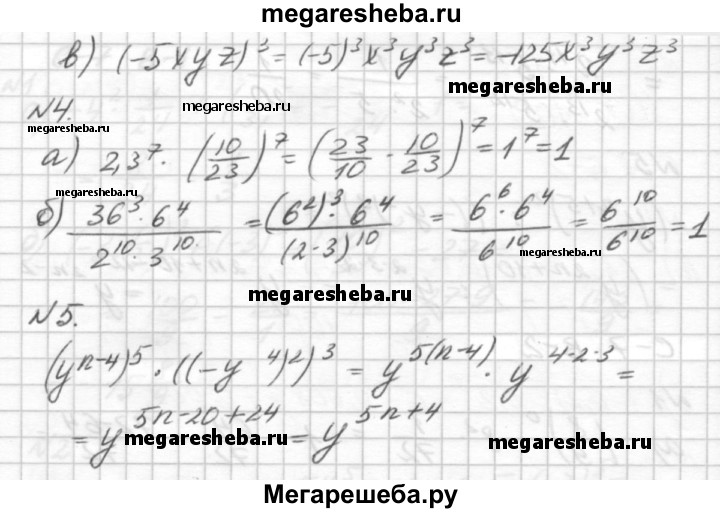 megaresheba.ru
в) (-5xyz)³ = (-5)³x³y³z³ = -125x³y³z³
megaresheba.ru
megaresheba.ru
№4.
megaresheba.ru
а) 2,3⁷ · (10/23)⁷ = (23/10 · 10/23)⁷ = 1⁷ = 1
megaresheba.ru
б) 36³ · 6⁴ / 2¹⁰ · 3¹⁰ = (6²)³ · 6⁴ / (2·3)¹⁰ = 6⁶ · 6⁴ / 6¹⁰ = 6¹⁰/6¹⁰ = 1
megaresheba.ru
megaresheba.ru
№5.
(yⁿ⁻⁴)⁵ · ((-y⁴)²)³ = y⁵⁽ⁿ⁻⁴⁾ · y⁴·²·³ =
= y⁵ⁿ⁻²⁰⁺²⁴ = y⁵ⁿ⁺⁴
megaresheba.ru
megaresheba.ru
Мегарешеба.ру